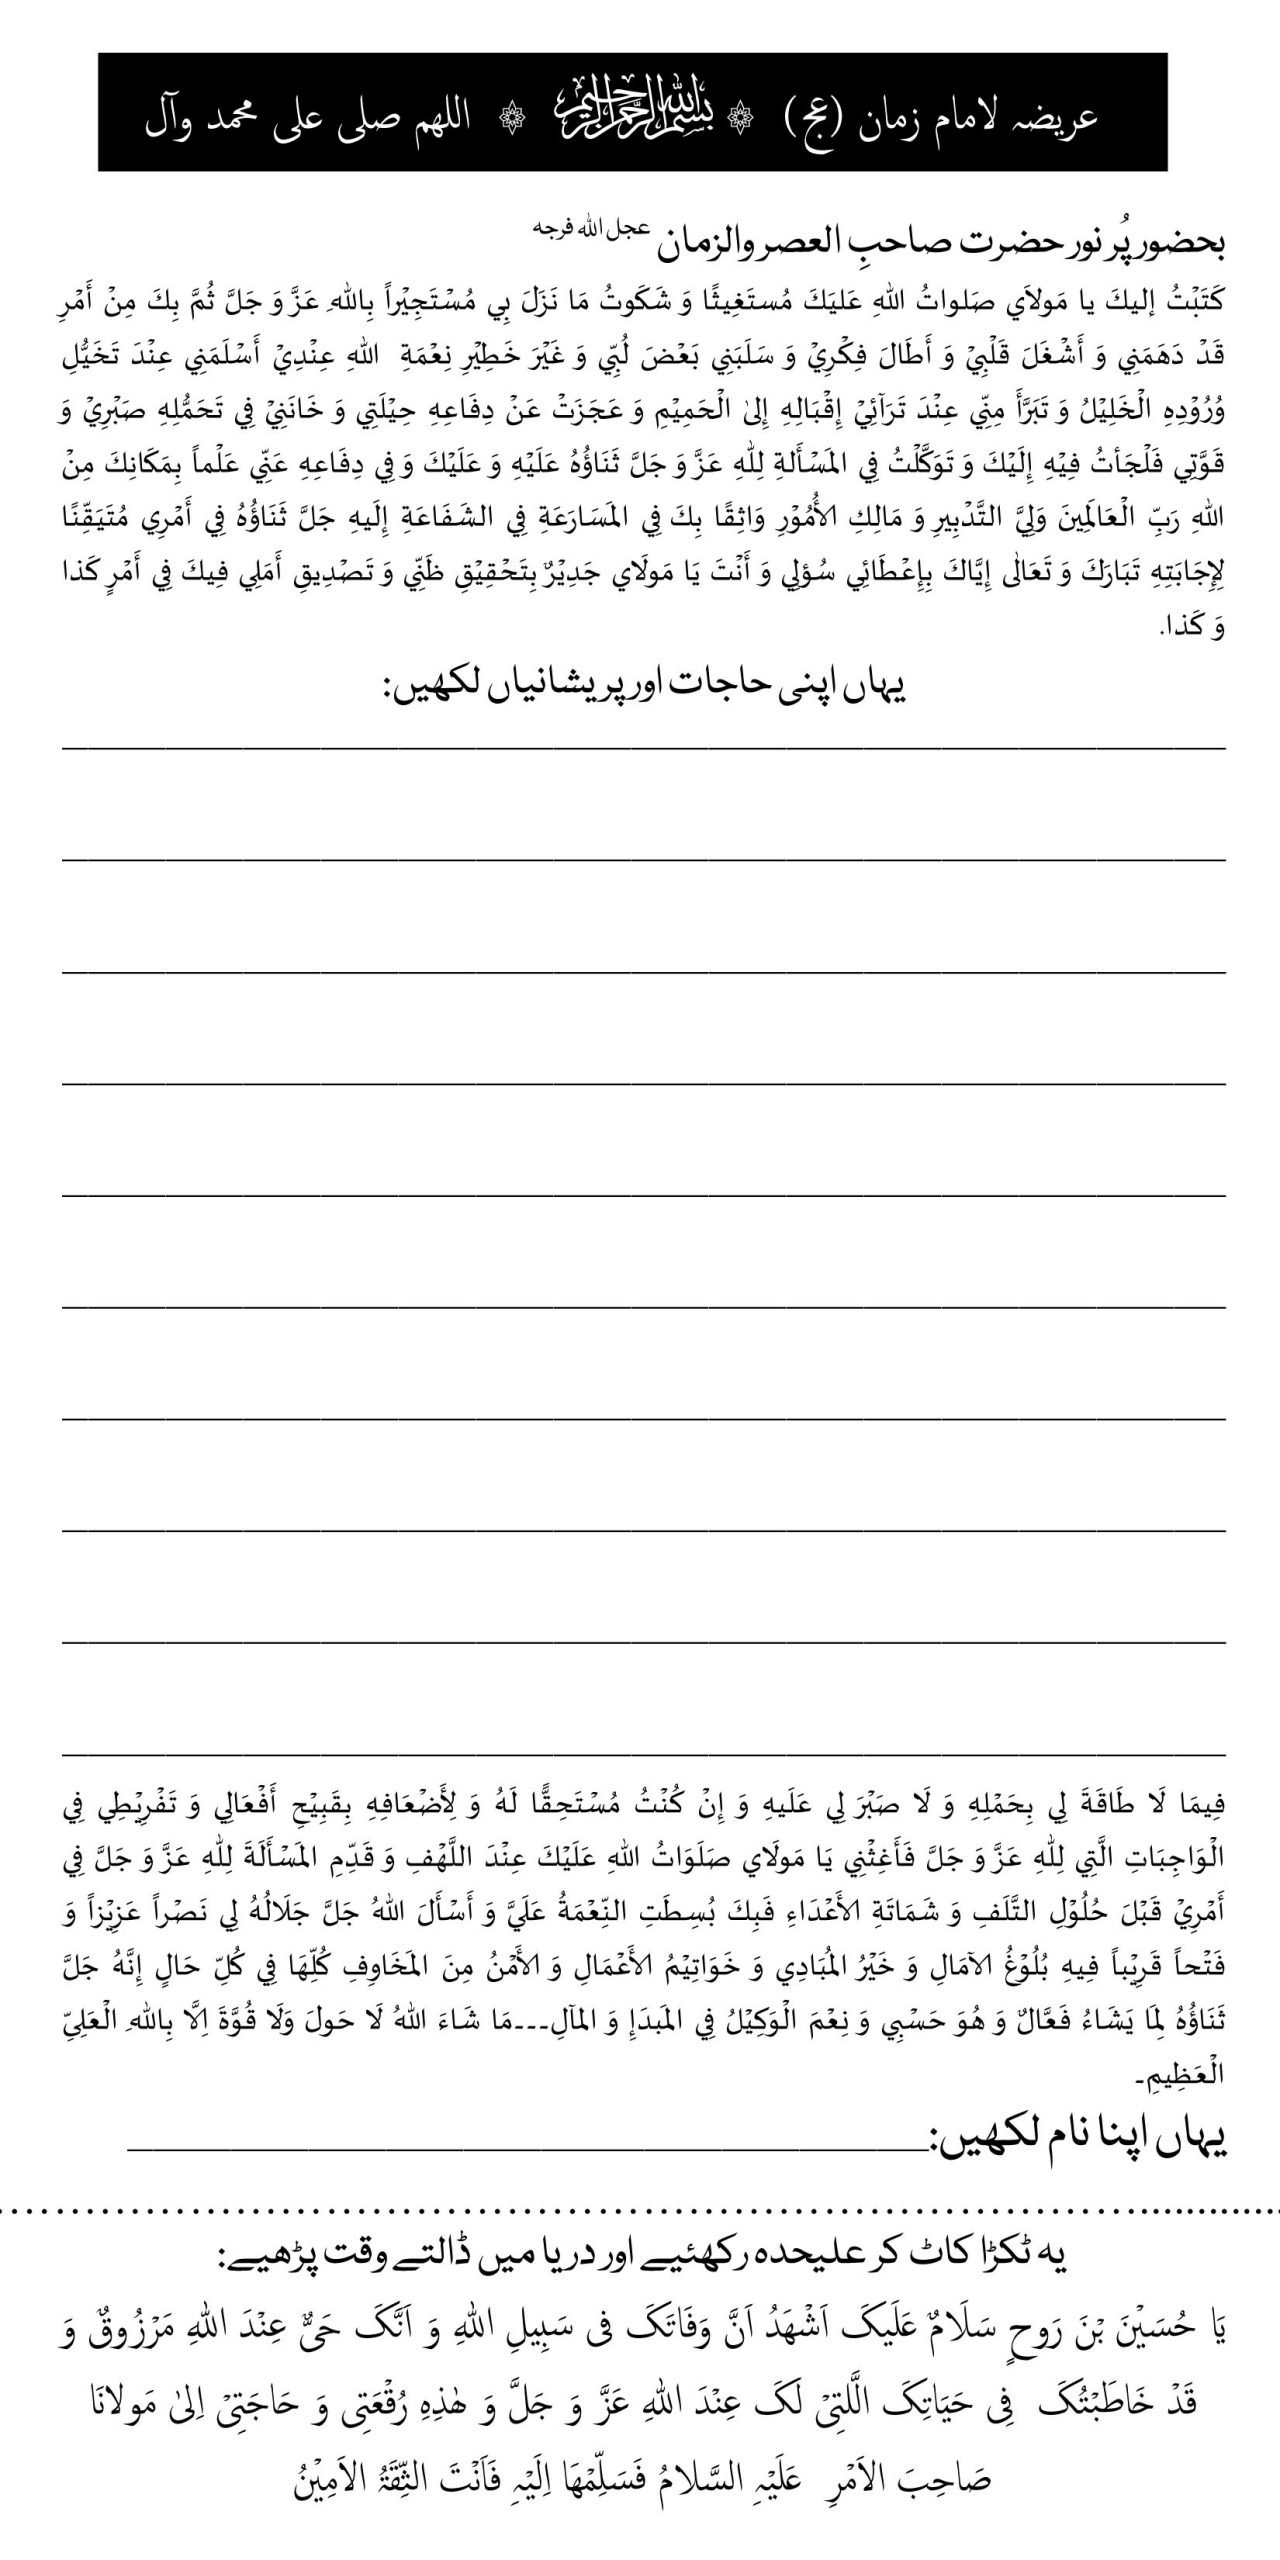 عریضہ لامام زمان (عج) ۞ ﷽ ۞ اللهم صلى على محمد وآل
بحضور پُر نور حضرت صاحبِ العصر والزمان عجل الله فرجه
كَتَبْتُ إليكَ يا مَولاَي صَلواتُ اللهِ عَليَكَ مُستَغِيثًا وَ شَكَوتُ مَا نَزَلَ بِي مُسْتَجِيْراً بِاللهِ عَزَّ وَ جَلَّ ثُمَّ بِكَ مِنْ أَمْرِ
قَدْ دَهَمَنِي وَ أَشْغَلَ قَلْبِيْ وَ أَطَالَ فِكْرِيْ وَ سَلَبَنِي بَعْضَ لُبِّي وَ غَيْرَ خَطِيْرِ نِعْمَةِ اللهِ عِنْدِيْ أَسْلَمَنِي عِنْدَ تَخَيُّلِ
وُرُوْدِهِ الْخَلِيْلُ وَ تَبَرَّأَ مِنِّي عِنْدَ تَرَآئِيْ إِقْبَالِهِ إِلىٰ الْحَمِيْمِ وَ عَجَزَتْ عَنْ دِفَاعِهِ حِيْلَتِي وَ خَانَنِيْ فِي تَحَمُّلِهِ صَبْرِيْ وَ
قَوَّتِي فَلْجَأتُ فِيْهِ إِلَيْكَ وَ تَوَكَّلْتُ فِي المَسْأَلةِ لِلّهِ عَزَّ وَ جَلَّ ثَنَاؤُهُ عَلَيْهِ وَ عَلَيْكَ وَ فِي دِفَاعِهِ عَنِّي عَلْماً بِمَكَانِكَ مِنْ
اللهِ رَبِّ الْعَالَمِينَ وَلِيَّ التَّدْبِيرِ وَ مَالِكِ الأُمُوْرِ وَاثِقًا بِكَ فِي المَسَارَعَةِ فِي الشَفَاعَةِ إِلَيهِ جَلَّ ثَنَاؤُهُ فِي أَمْرِي مُتَيَقِّنًا
لِإِجَابَتِهِ تَبَارَكَ وَ تَعَالٰى إِيَّاكَ بِإِعْطَائِي سُؤلِي وَ أَنْتَ يَا مَولَاي جَدِيْرٌ بِتَحْقِيْقِ ظَنِّي وَ تَصْدِيقِ أَمَلِي فِيكَ فِي أَمْرٍ كَذا
وَ كَذا.
یہاں اپنی حاجات اور پریشانیاں لکھیں:
فِيمَا لَا طَاقَةَ لِي بِحَمْلِهِ وَ لَا صَبْرَ لِي عَلَيهِ وَ إِنْ كُنْتُ مُسْتَحِقًّا لَهُ وَ لِأَضْعَافِهِ بِقَبِيْحِ أَفْعَالِي وَ تَفْرِيْطِي فِي
الْوَاجِبَاتِ الَّتِي لِلّهِ عَزَّ وَ جَلَّ فَأَغِثْنِي يَا مَولَاي صَلَوَاتُ اللهِ عَلَيْكَ عِنْدَ اللَّهْفِ وَ قَدِّمِ المَسْأَلَةَ لِلّهِ عَزَّ وَ جَلَّ فِي
أَمْرِيْ قَبْلَ حُلُوْلِ التَّلَفِ وَ شَمَاتَةِ الأَعْدَاءِ فَبِكَ بُسِطَتِ النِّعْمَةُ عَلَيَّ وَ أَسْأَلَ اللهُ جَلَّ جَلَالُهُ لِي نَصْراً عَزِيْزاً وَ
فَتْحاً قَرِيْباً فِيهِ بُلُوْغُ الآمَالِ وَ خَيْرُ المُبَادِي وَ خَوَاتِيْمُ الأَعْمَالِ وَ الأَمْنُ مِنَ المَخَاوِفِ كُلِّهَا فِي كُلِّ حَالٍ إِنَّهُ جَلَّ
ثَنَاؤُهُ لِمَا يَشَاءُ فَعَّالٌ وَ هُوَ حَسْبِي وَ نِعْمَ الْوَكِيْلُ فِي المَبدَاِ وَ المآلِ۔۔۔مَا شَاءَ اللهُ لَا حَولَ وَلَا قُوَّةَ اِلَّا بِاللهِ الْعَلِيِّ
الْعَظِيمِ۔
یہاں اپنا نام لکھیں:
یہ ٹکڑا کاٹ کر علیحدہ رکھئیے اور دریا میں ڈالتے وقت پڑھیے:
یَا حُسَیْنَ بْنَ رَوحٍ سَلَامٌ عَلَیکَ اَشْھَدُ اَنَّ وَفَاتَکَ فی سَبِیلِ اللهِ وَ اَنَّکَ حَیٌّ عِنْدَ اللهِ مَرْزُوقٌ وَ
قَدْ خَاطَبْتُکَ فِی حَیَاتِکَ الَّلتِیْ لَکَ عِنْدَ اللهِ عَزَّ وَ جَلَّ وَ هٰذِهِ رُقْعَتِی وَ حَاجَتِیْ اِلیٰ مَولانَا
صَاحِبَ الاَمْرِ عَلَیْہِ السَّلامُ فَسَلِّمْھَا اِلَیْہِ فَاَنْتَ الثِّقَۃُ الاَمِیْنُ